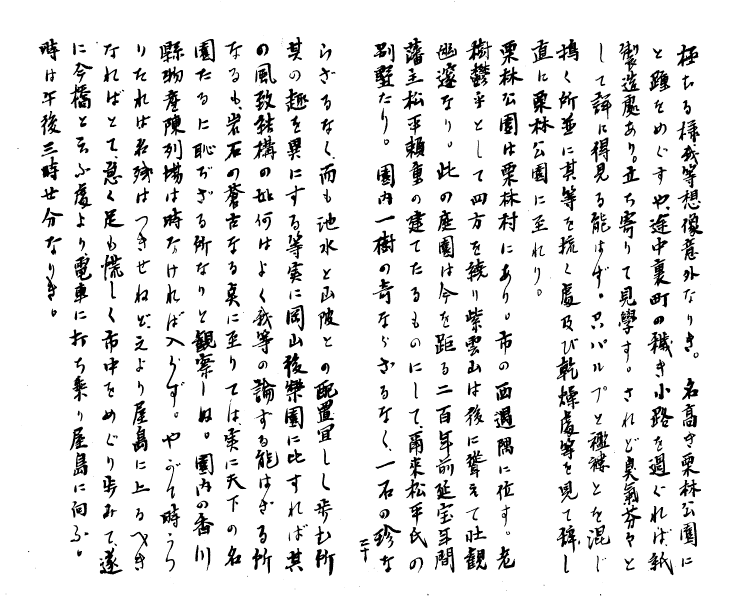 極むる様我等想像意外なりき。名高き栗林公園に
と踵をめぐすや、途中裏町の穢き小路を過ぐれば紙
製造處あり。立ち寄りて見學す。されど臭氣芬々と
して詳に得見る能はず。只パルプと襤褸とを混じ
搗く所並に其等を抗く處及び乾燥處等を見て辞し
直に栗林公園に至れり。
栗林公園は栗林村にあり。市の西過隅に位す。老
樹鬱乎として四方を繞り紫雲山は後に聳えて壮観
幽邃なり。此の庭園は今を距る二百年前延宝年間
藩主松平頼重の建てたるものにして、爾来松平氏の
別墅たり。園内一樹の奇ならざるなく、一石の珍な
三十
らざるなく而も池水と山陂との配置宜しく歩む所
其の趣を異にする等実に岡山後樂園に比すれば其
の風致結構の如何はよく我等の論する能はざる所
なるも、岩石の蒼古なる点に至りては、実に天下の名
園たるに恥ぢざる所なりと観察しぬ。園内の香川
縣物産陳列場は時なければ入らず。やがて時うつ
りたれは名残はつきせねど、之より屋島に上るべき
なればとて、急く足も慌しく市中をめぐり歩みて、遂
に今橋と云ふ處より、電車に打ち乗り屋島に向ふ。
時は午後三時廿分なりき。